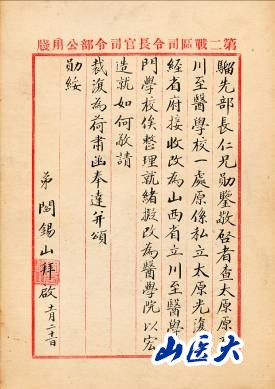 第二戰區司令長官司令部公用牋
騮先部長仁兄勛鑒敬啓者查太原原有
川至醫學校一處原係私立太原光復後
經省府接收改為山西省立川至醫學專
門學校俟整理就緒擬改為醫學院以宏
造就如何敬請
裁復為荷肅函奉達并頌
勛綏
弟閻錫山拜啟 十一月二十日
山医大